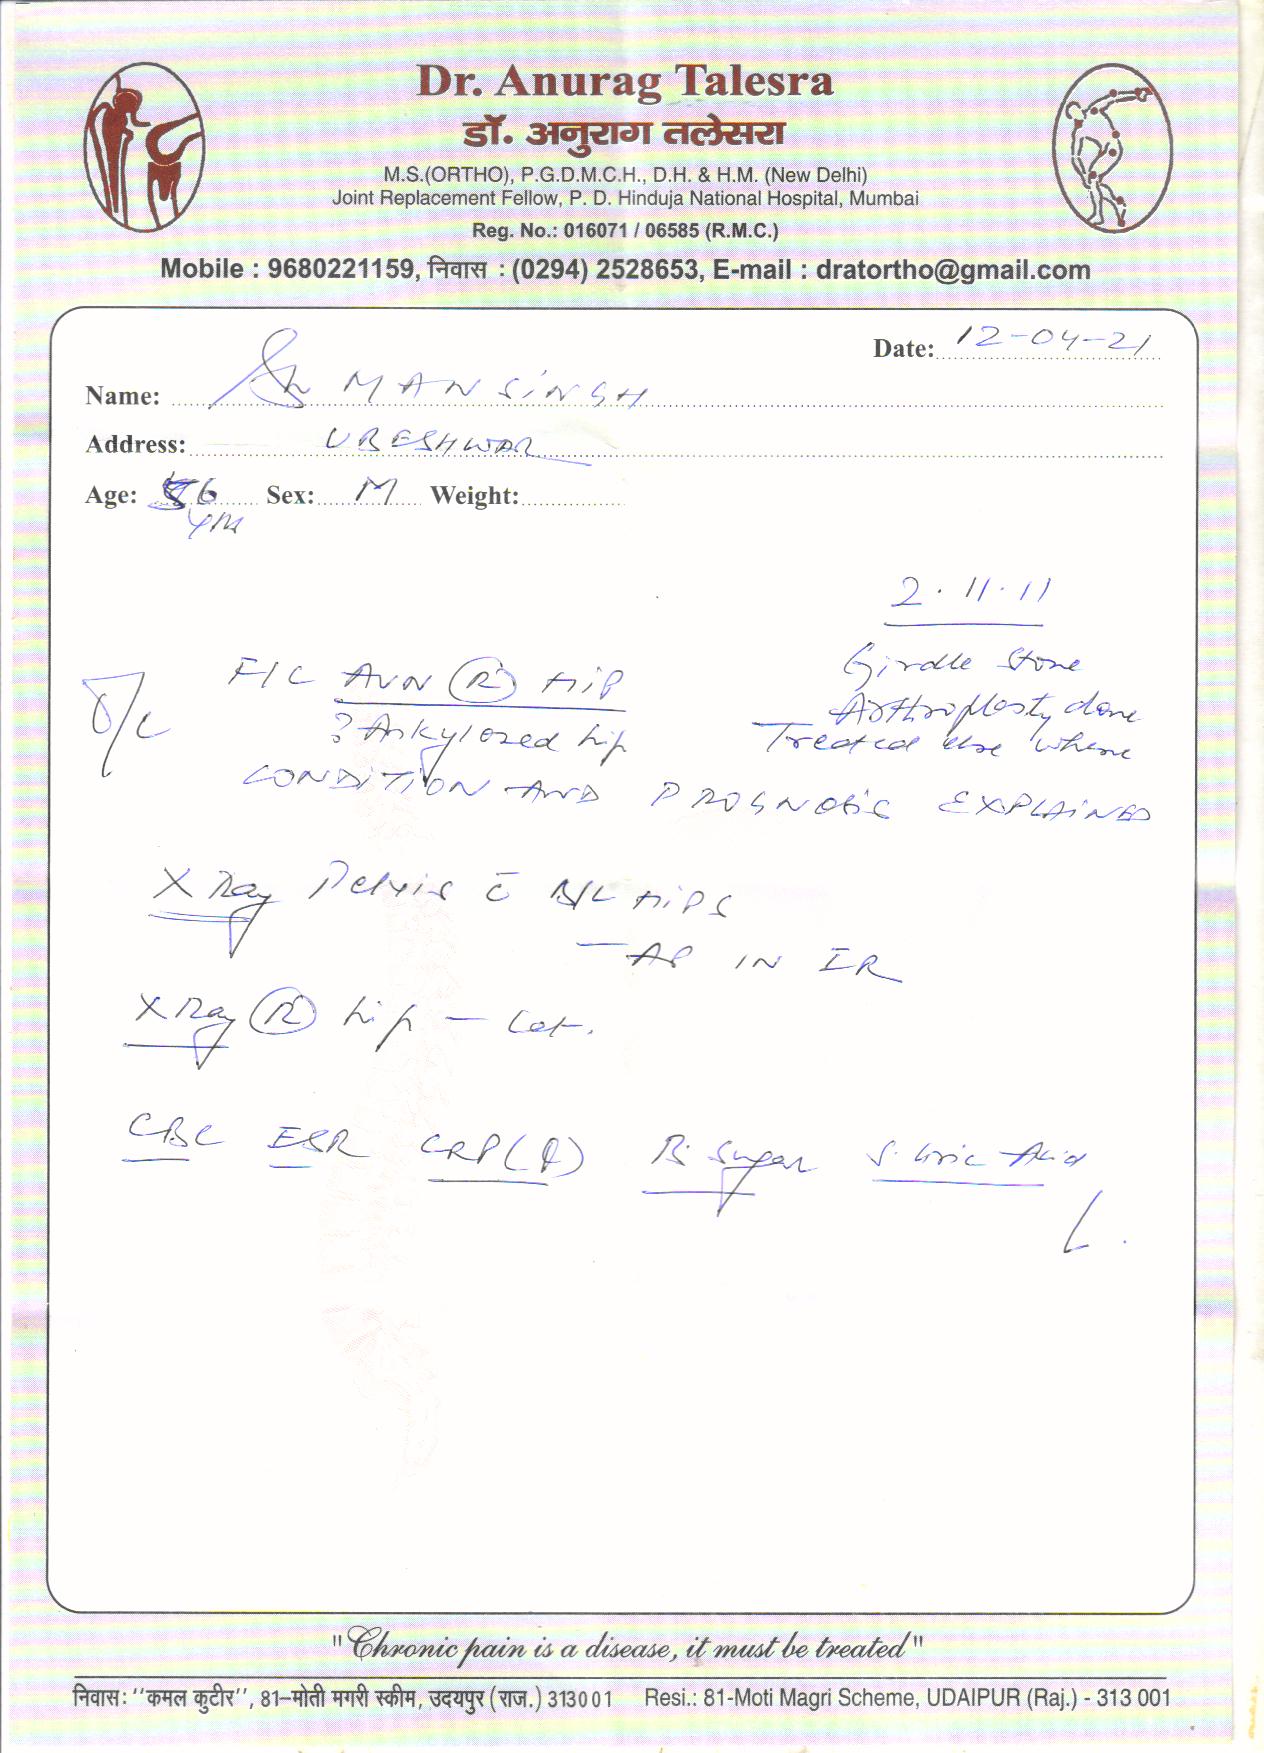 Dr. Anurag Talesra
डॉ. अनुराग तलेसरा
M.S.(ORTHO), P.G.D.M.C.H., D.H. & H.M. (New Delhi)
Joint Replacement Fellow, P. D. Hinduja National Hospital, Mumbai
Reg. No.: 016071 / 06585 (R.M.C.)
Mobile : 9680221159, निवास : (0294) 2528653, E-mail : dratortho@gmail.com
Date: 12-04-21
Name: Sh MAN SiNGH
Address: UBESHWAR
Age: 56 Sex: M Weight:
2.11.11
Girdle Stone
Arthroplasty done
Treated else where
F/C AVN (R) HiP
? Ankylosed hip
CONDiTiON AND PROGNOSiS EXPLAiNED
X Ray Pelvis c̄ B/L HiPS
– AP IN IR
X Ray (R) hip – Lat.
CBC ESR CRP(Q) B. Sugar S. Uric Acid
"Chronic pain is a disease, it must be treated"
निवास: ‘‘कमल कुटीर’’, 81–मोती मगरी स्कीम, उदयपुर (राज.) 313001 Resi.: 81-Moti Magri Scheme, UDAIPUR (Raj.) - 313 001